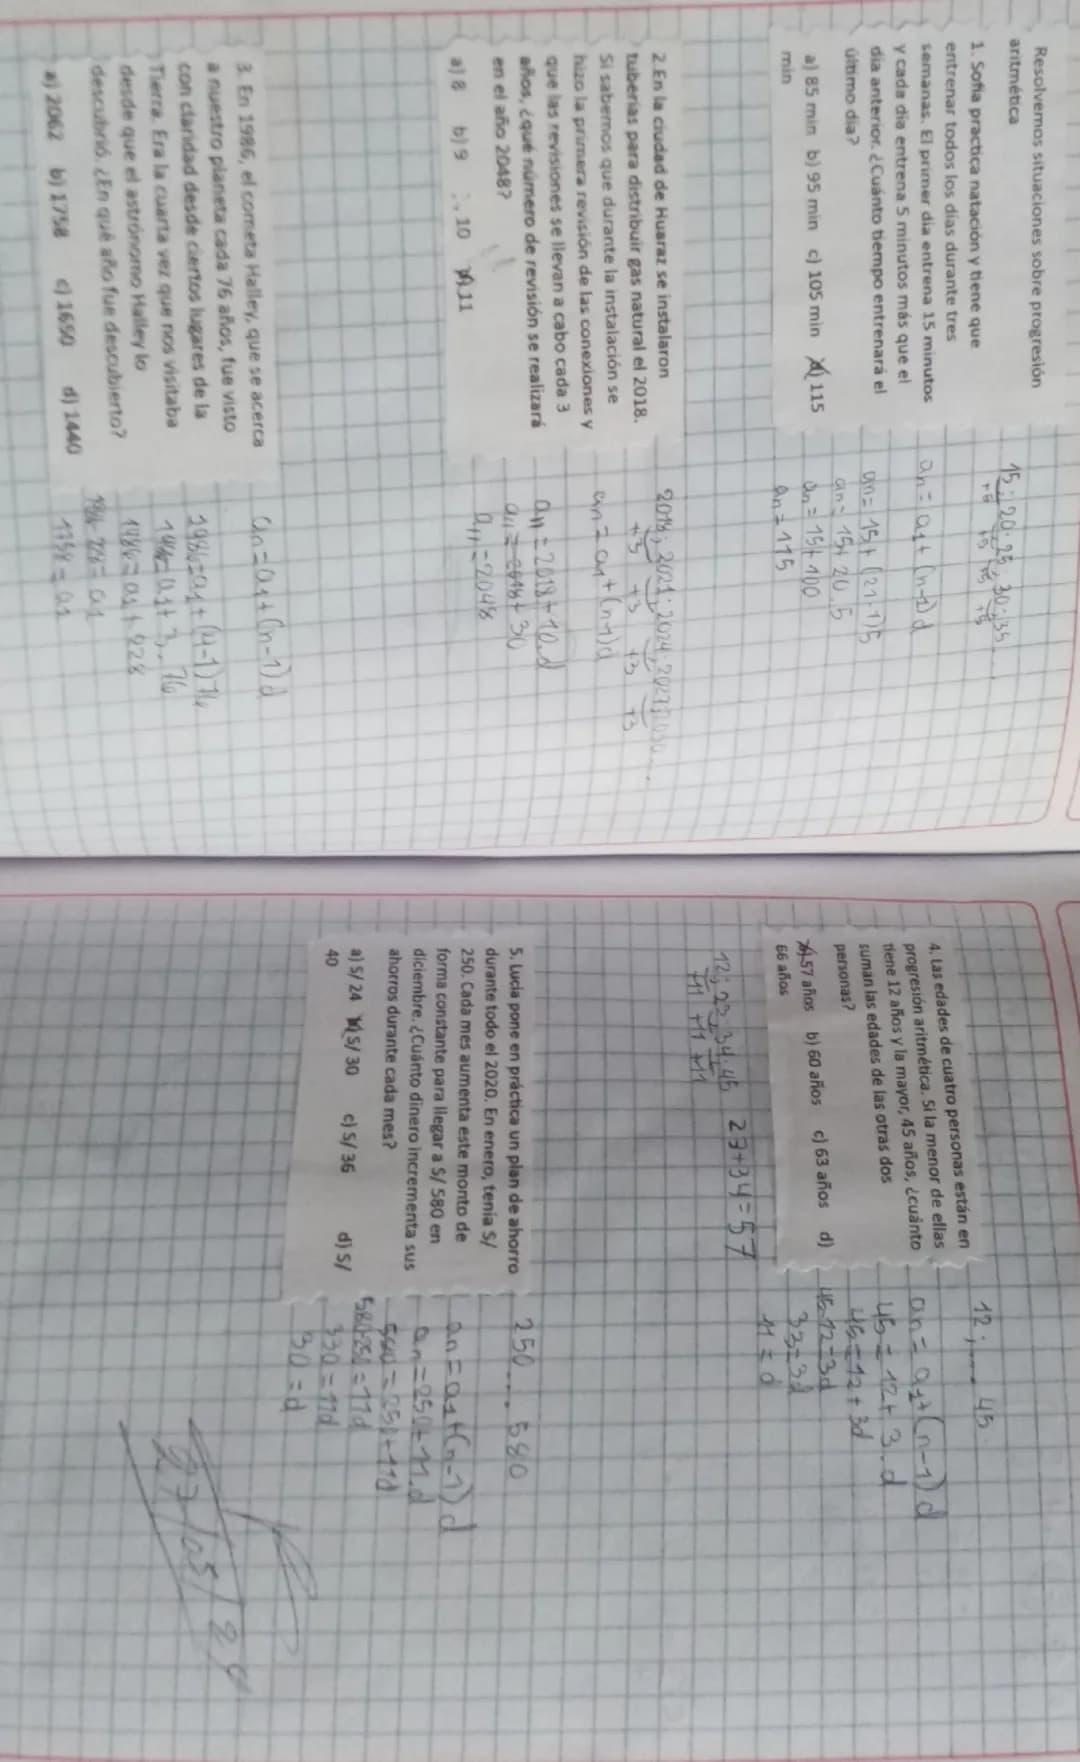 Resolvemos situaciones sobre progresión
aritmética
1. Sofía practica natación y tiene que
entrenar todos los días durante tres
semanas. El primer día entrena 15 minutos
y cada día entrena 5 minutos más que el
día anterior. ¿Cuánto tiempo entrenará el
último día?
a) 85 min b) 95 min c) 105 min d) 115
min
15; 20; 25; 30; 35...
+5 +5 +5 +5
an = a1 + (n-1)d
an = 15 + (21-1)5
an = 15 + 20.5
an = 15 + 100
an = 115
2.En la ciudad de Huaraz se instalaron
tuberías para distribuir gas natural el 2018.
Si sabemos que durante la instalación se
hizo la primera revisión de las conexiones y
que las revisiones se llevan a cabo cada 3
años, ¿qué número de revisión se realizará
en el año 2048?
a) 8 b) 9 10 11
2018; 2021; 2024; 2027; 2030...
+3 +3 +3 +3
an = a1 + (n-1)d
a11 = 2018 + 10.d
a11 = 2018 + 30
a11 = 2048
3. En 1986, el cometa Halley, que se acerca
a nuestro planeta cada 76 años, fue visto
con claridad desde ciertos lugares de la
Tierra. Era la cuarta vez que nos visitaba
desde que el astrónomo Halley lo
descubrió. ¿En qué año fue descubierto?
a) 2062 b) 1758 c) 1650 d) 1440
an = a1 + (n-1)d
1986 = a1 + (4-1)76
1986 = a1 + 3.76
1986 = a1 + 228
1986-228 = a1
1758 = a1
4. Las edades de cuatro personas están en
progresión aritmética. Si la menor de ellas
tiene 12 años y la mayor, 45 años, ¿cuánto
suman las edades de las otras dos
personas?
a) 57 años b) 60 años c) 63 años d)
66 años
12;.... 45
an = a1 + (n-1)d
45 = 12 + 3.d
45 = 12 + 3d
45-12=3d
33=3d
11 = d
12; 23; 34; 45 23+34=57
+11 +11 +11
5. Lucía pone en práctica un plan de ahorro
durante todo el 2020. En enero, tenía S/
250. Cada mes aumenta este monto de
forma constante para llegar a S/ 580 en
diciembre. ¿Cuánto dinero incrementa sus
ahorros durante cada mes?
a) S/ 24 b) S/ 30 c) S/ 36 d) S/
40
250.... 580
an = a1 + (n-1)d
an = 250 + 11.d
580 = 250 + 11d
580-250 = 11d
330 = 11d
30 = d